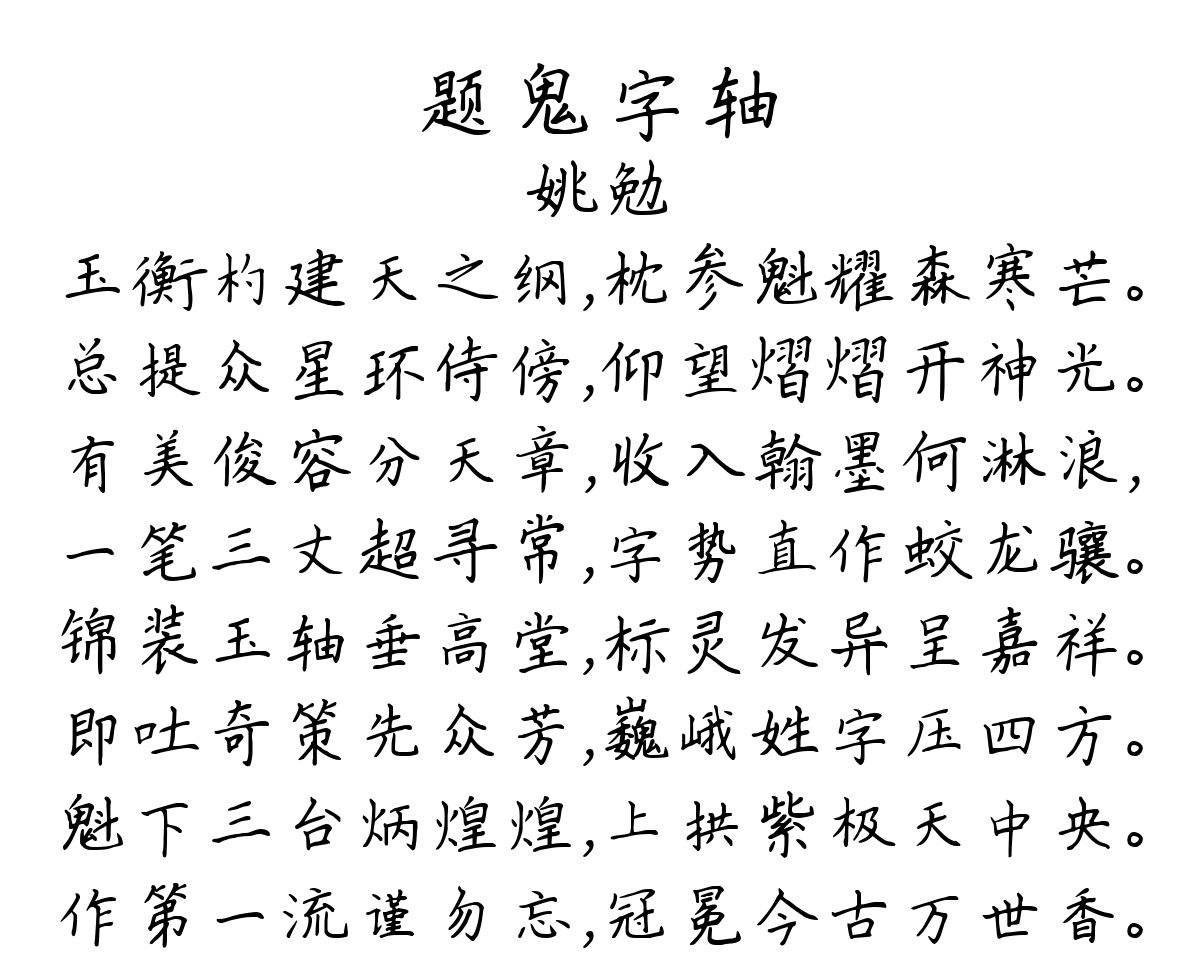 题鬼字轴
姚勉
玉衡杓建天之纲,枕参魁耀森寒芒。
总提众星环侍傍,仰望熠熠开神光。
有美俊容分天章,收入翰墨何淋浪,
一笔三丈超寻常,字势直作蛟龙骧。
锦装玉轴垂高堂,标灵发异呈嘉祥。
即吐奇策先众芳,巍峨姓字压四方。
魁下三台炳煌煌,上拱紫极天中央。
作第一流谨勿忘,冠冕今古万世香。